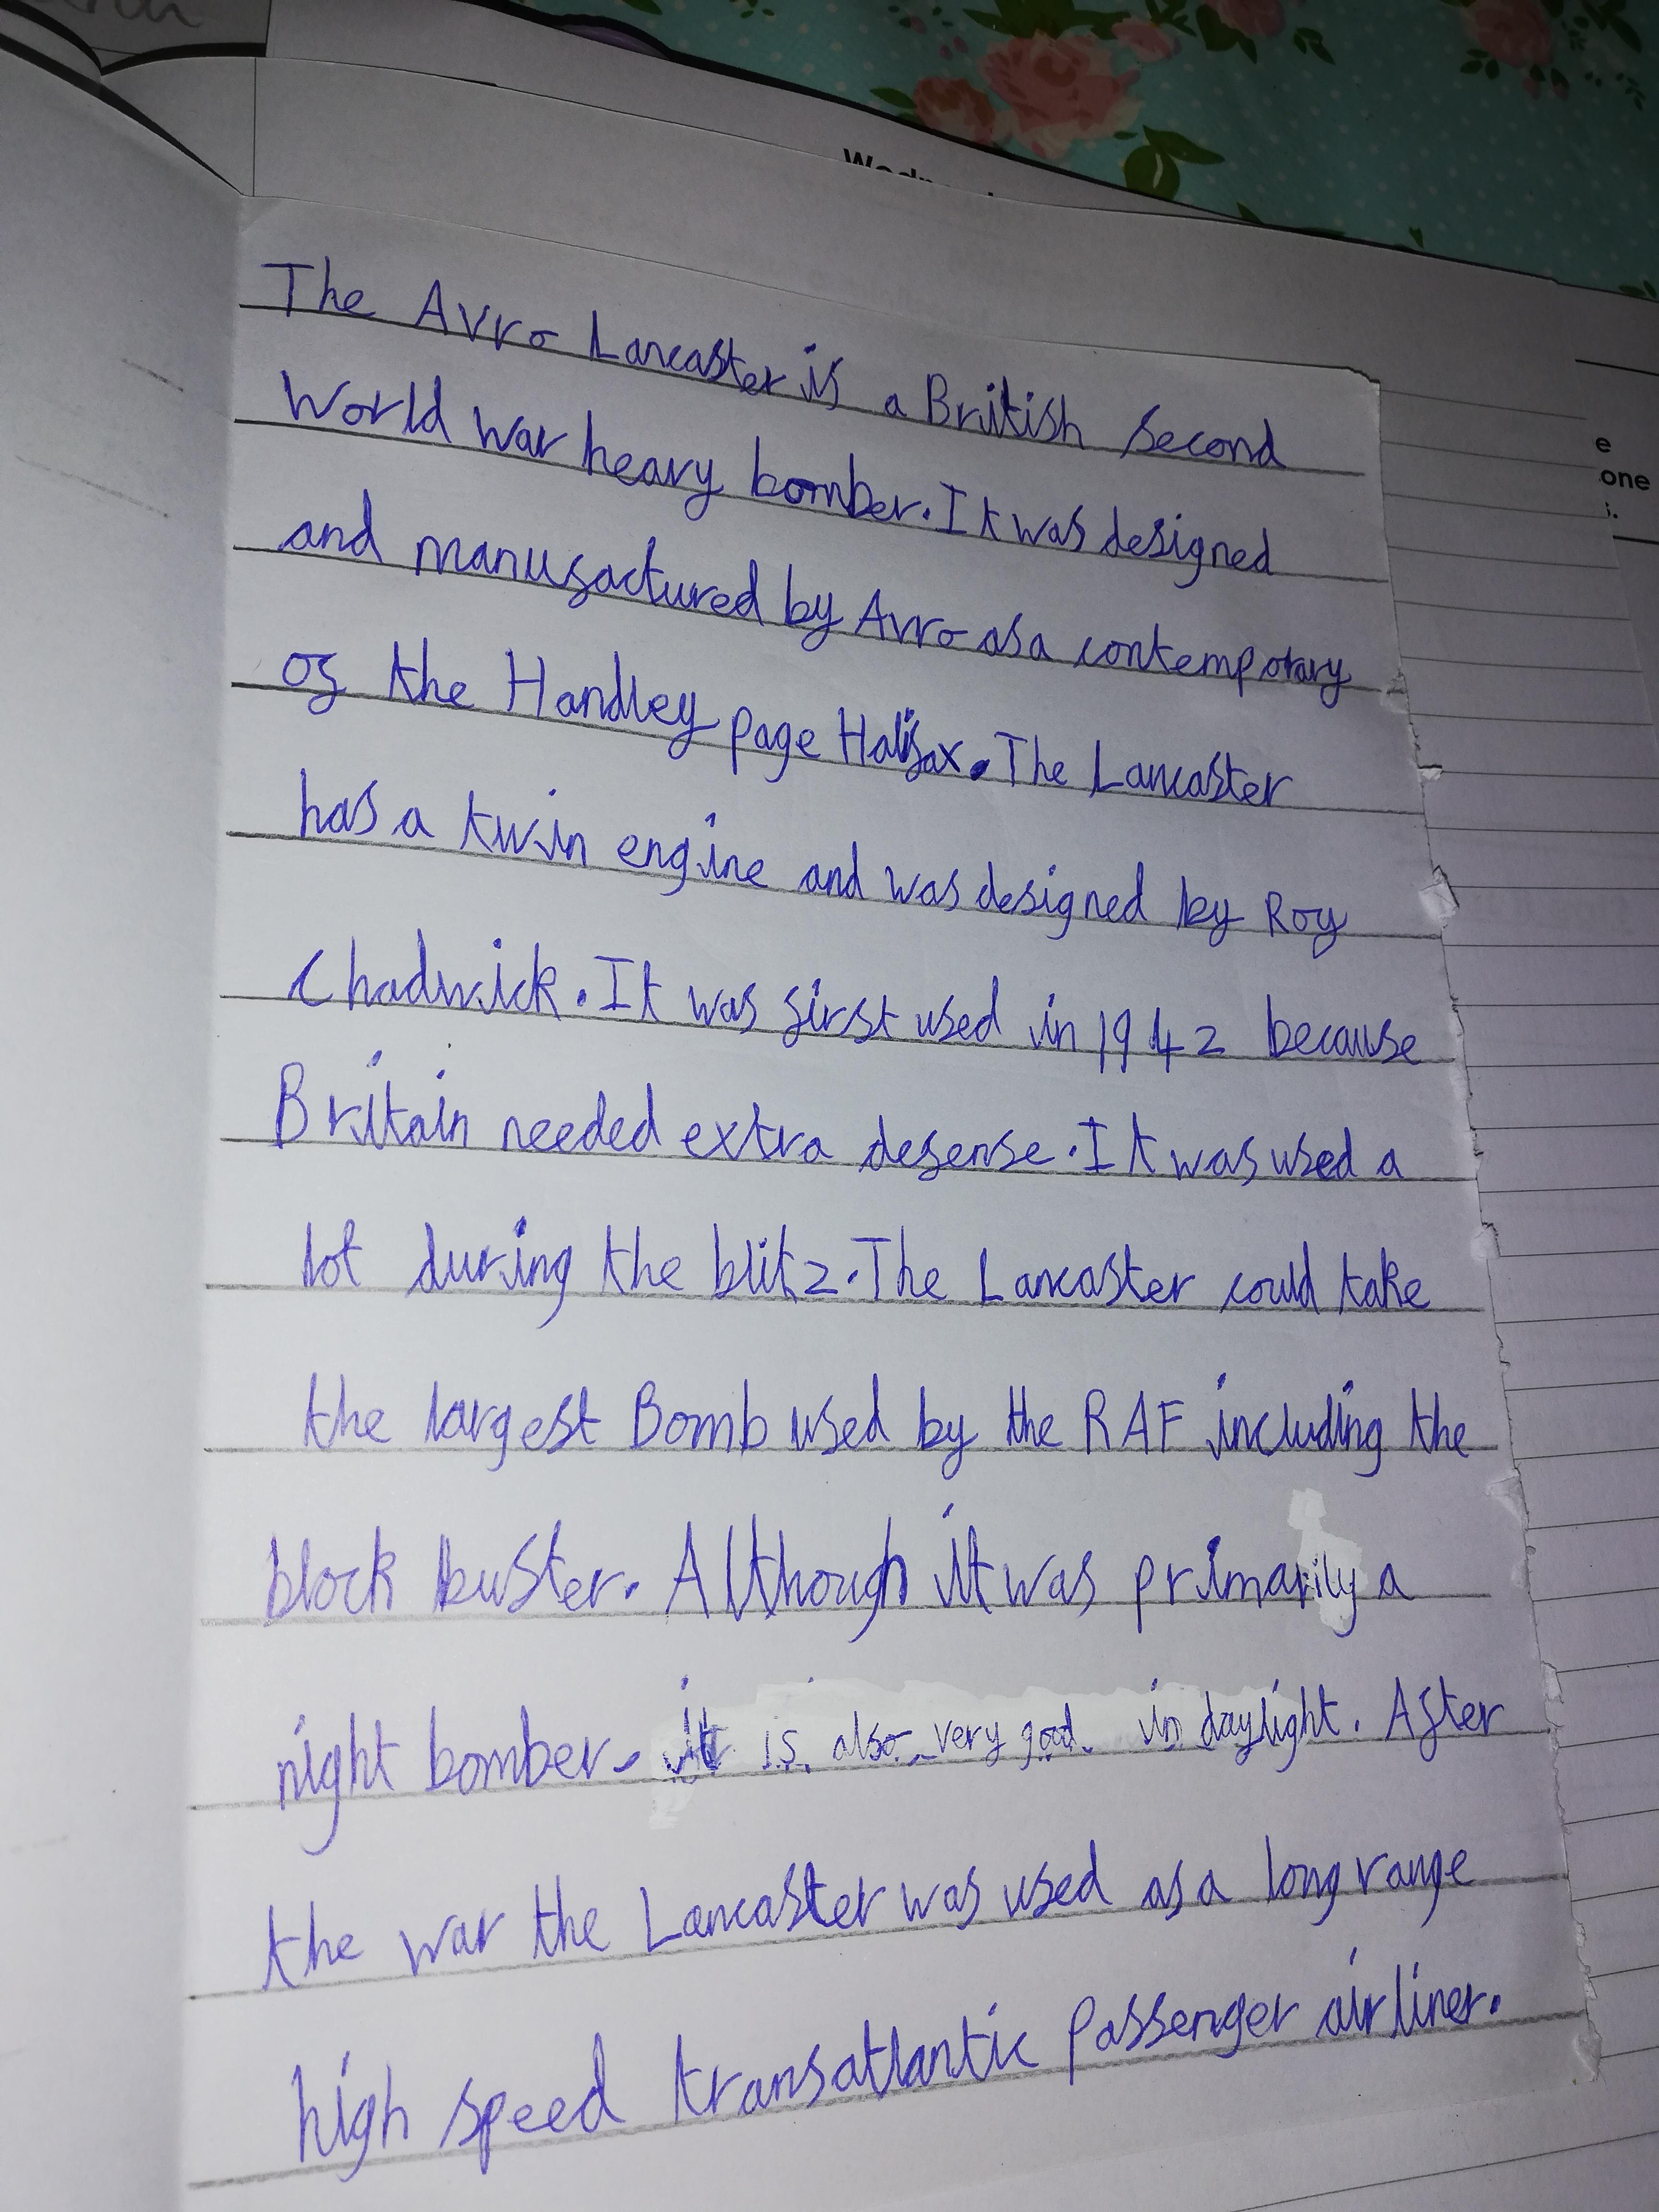 Wedn
e
one
s.
The Avro Lancaster is a British second
World war heavy bomber. It was designed
and manufactured by Avro as a contemporary
of the Handley page Halifax. The Lancaster
has a twin engine and was designed by Roy
Chadwick. It was first used in 1942 because
Britain needed extra defense. It was used a
lot during the blitz. The Lancaster could take
the largest Bomb used by the RAF including the
block buster. Although it was primarily a
night bomber. it is also very good in daylight. After
the war the Lancaster was used as a long range
high speed transatlantic passenger airliner.